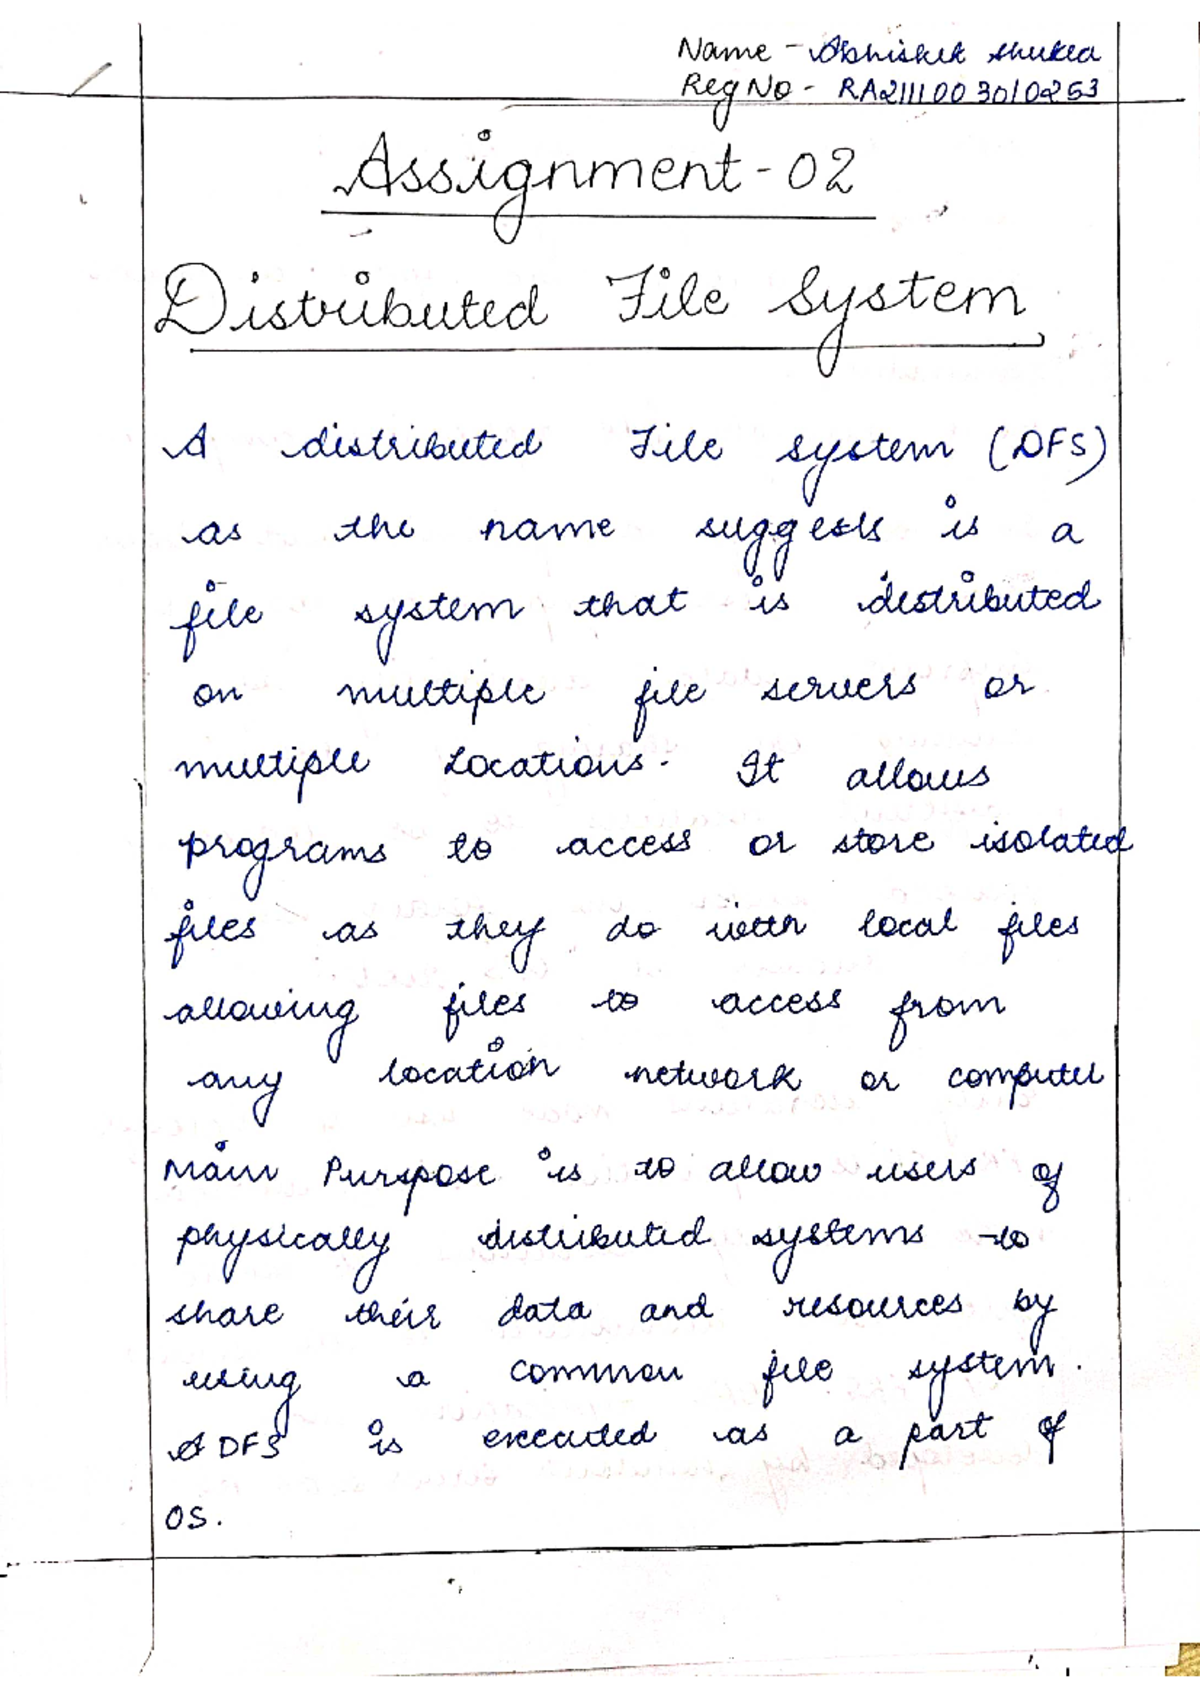 Name - Abhishek Shukla
Reg No - RA2111003010253
Assignment - 02
Distributed File System
A distributed File system (DFS)
as the name suggests is a
file system that is distributed
on multiple file servers or
multiple Locations. It allows
programs to access or store isolated
files as they do with local files
allowing files to access from
any location network or computer
Main Purspose is to allow users of
physically distributed systems to
share their data and resources by
using a common file system.
A DFS is executed as a part of
OS.